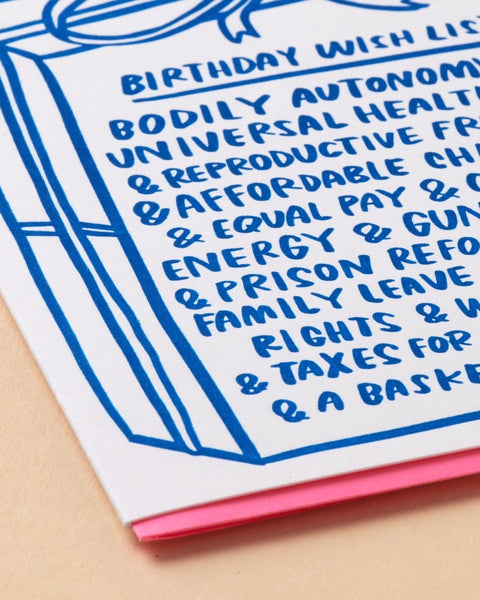 BIRTHDAY WISH LIS
BODILY AUTONOMY
UNIVERSAL HEALT
& REPRODUCTIVE FR
& AFFORDABLE CH
& EQUAL PAY &
ENERGY & GUN
& PRISON REFO
FAMILY LEAVE
RIGHTS & W
& TAXES FOR
& A BASKE